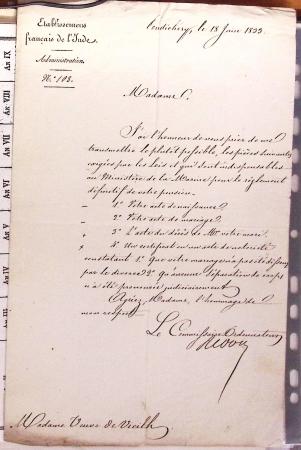 Etablissemens
français de l'Inde.
Administration.
N.° 108.
Pondichéry, le 18 Juin 1833.
Madame,
J'ai l'honneur de vous prier de me
transmettre le plutôt possible, les pièces suivantes
exigées par les Lois et qui sont indispensables
au Ministère de la Marine pour le règlement
définitif de votre pension.
1° Votre acte de naissance
2° Votre acte de mariage
3° L'acte de décès de Mr votre mari
4° Un certificat ou un acte de notoriété
constatant 1° que votre mariage n'a pas été dissous
par le divorce 2° qu'aucune séparation de corps
n'a été prononcée judiciairement
Agréez, Madame, l'hommage de
mon respect.
Le Commissaire Ordonnateur
Madame Veuve de
An IX
An VIII
An VII
An VI
An V
An IV
An III